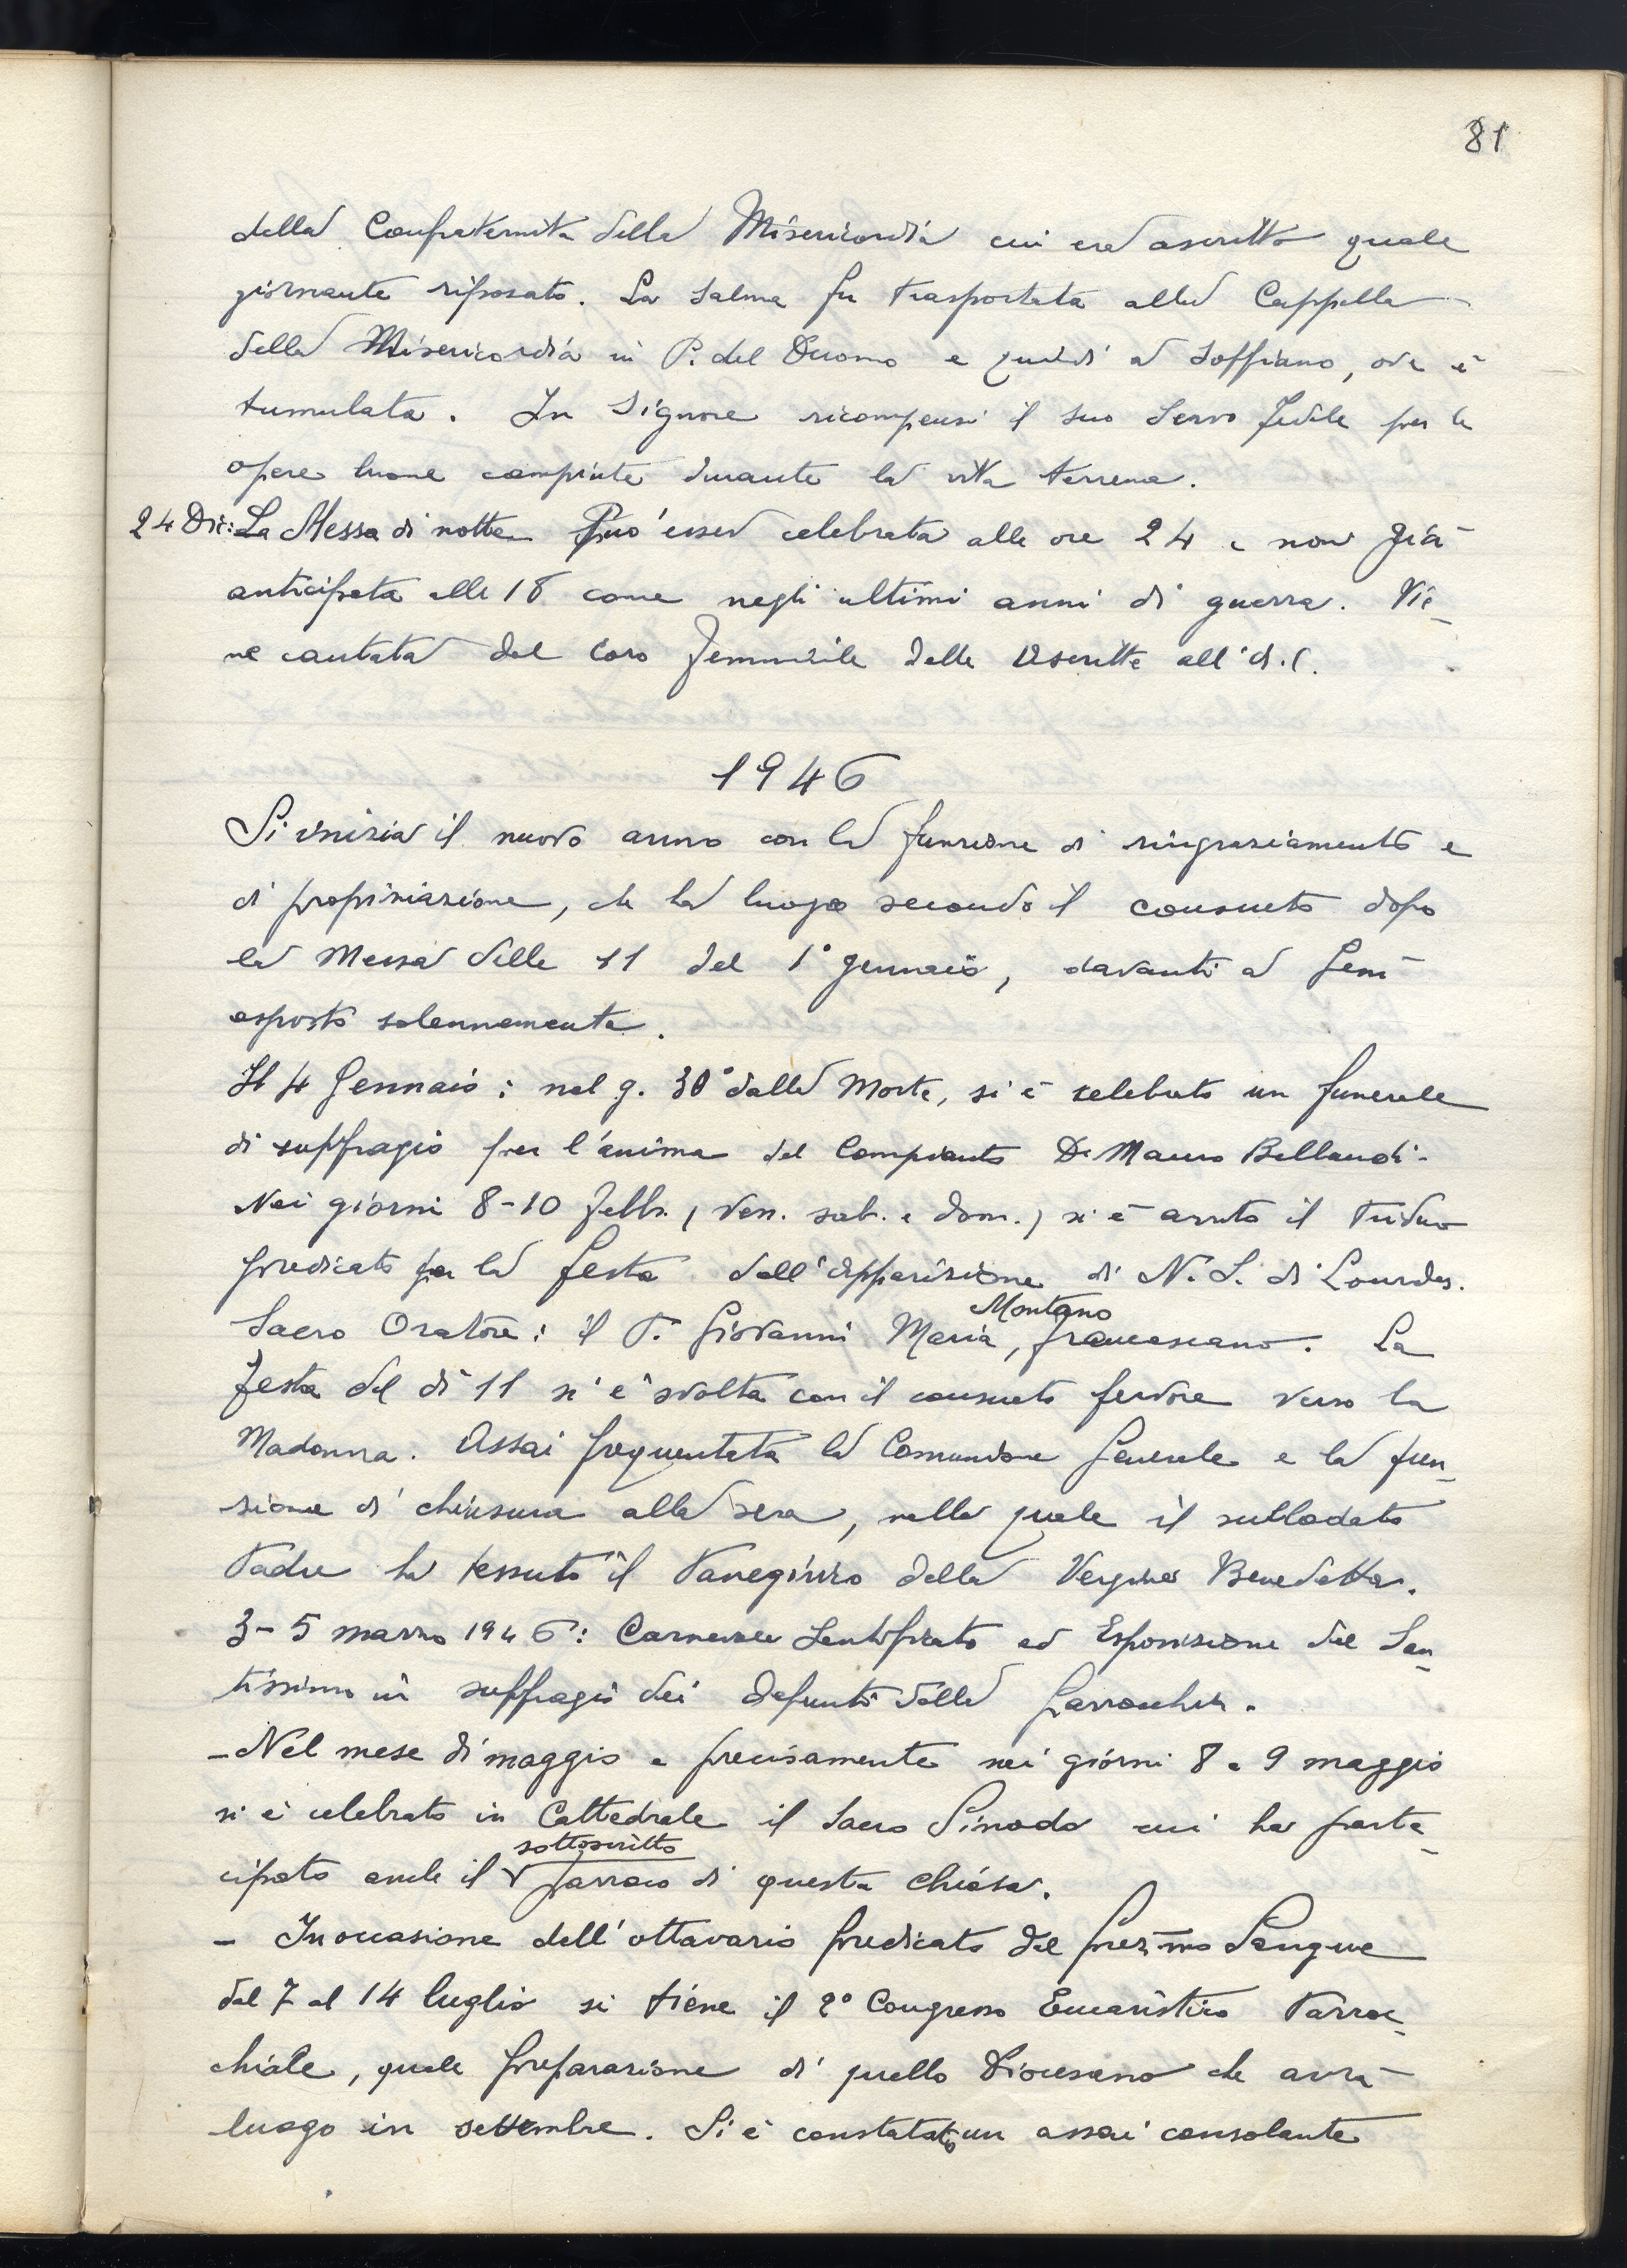 81
della Confraternita della Misericordia cui era ascritto quale
giornante riposato. La salma fu trasportata alla Cappella
della Misericordia in P. del Duomo e quindi a Soffiano, ove è
tumulata. Il Signore ricompensi il suo Servo fedele per le
opere buone compiute durante la vita terrena.
24 Dic: La Messa di notte può esser celebrata alle ore 24 e non già
anticipata alle 18 come negli ultimi anni di guerra. Vie-
ne cantata dal Coro femminile delle Ascritte all'A.C.
1946
Si inizia il nuovo anno con la funzione di ringraziamento e
di propiziazione, che ha luogo secondo il consueto dopo
la Messa delle 11 del 1° gennaio, davanti a Gesù
esposto solennemente.
Il 4 Gennaio: nel g. 30° dalla Morte, si è celebrato un funerale
di suffragio per l'anima del Compianto D. Mauro Bellandi.
Nei giorni 8-10 febb. (Ven. sab. e dom.) si è avuto il triduo
predicato per la festa dell'Apparizione di N. S. di Lourdes.
Montano
Sacro Oratore: il P. Giovanni Maria, francescano. La
festa del dì 11 si è svolta con il consueto fervore verso la
Madonna. Assai frequentata la Comunione Generale e la fun-
zione di chiusura alla sera, nella quale il sullodato
Padre ha tessuto il Panegirico della Vergine Benedetta.
3-5 marzo 1946: Carnevale Santificato ed Esposizione del San-
tissimo in suffragio dei defunti della parrocchia.
- Nel mese di maggio e precisamente nei giorni 8 e 9 maggio
si è celebrato in Cattedrale il Sacro Sinodo cui ha parte-
sottoscritto
cipato anche il parroco di questa Chiesa.
- In occasione dell'ottavario predicato del Prez.mo Sangue
dal 7 al 14 luglio si tiene il 2° Congresso Eucaristico Parroc-
chiale, quale preparazione di quello Diocesano che avrà
luogo in settembre. Si è constatato un assai consolante